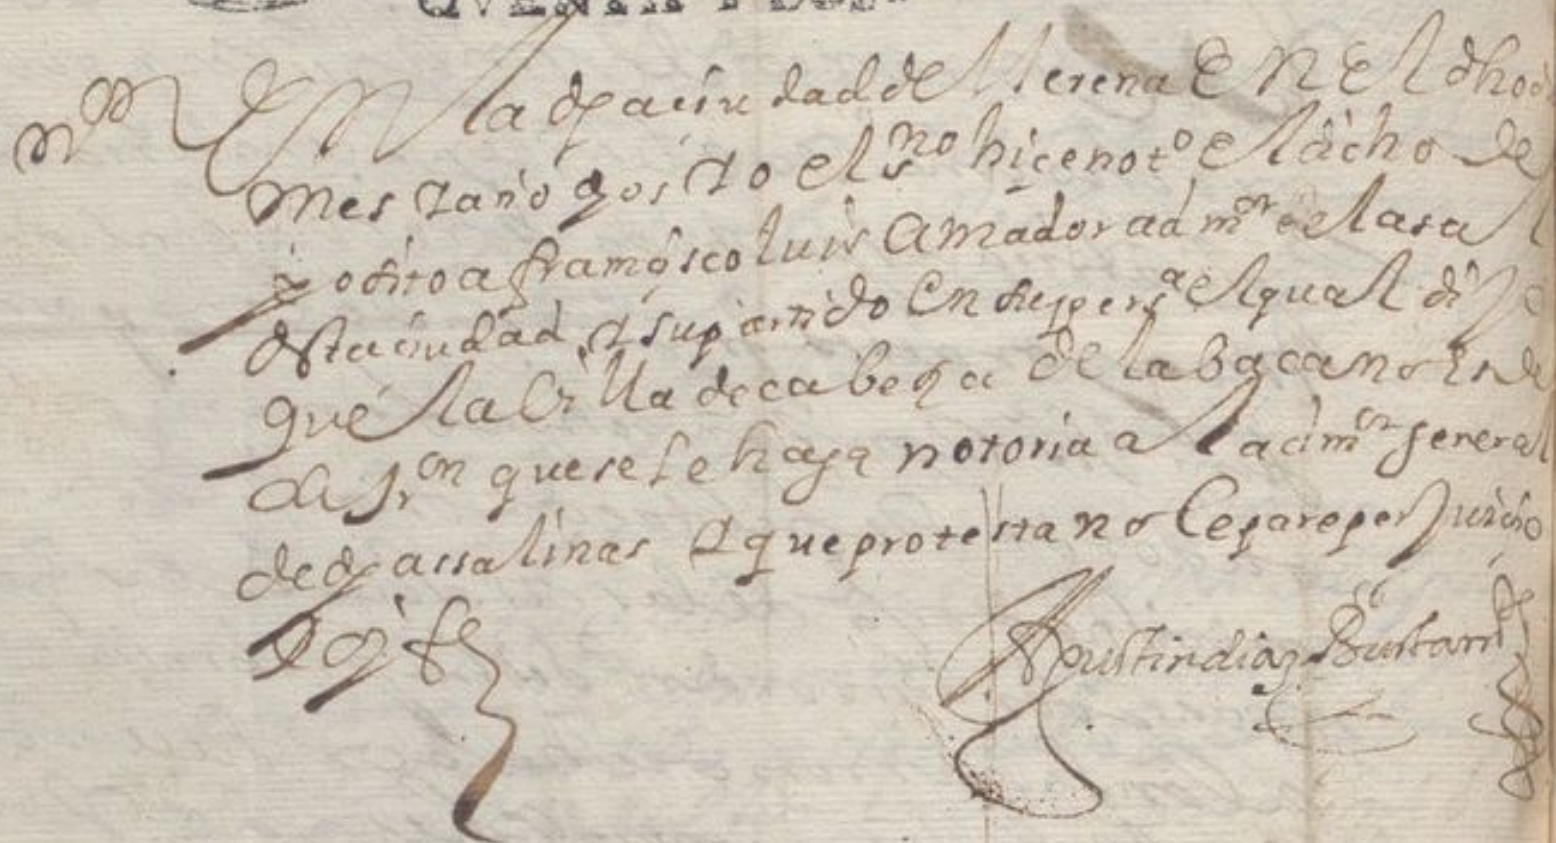 QVENTA Y DOS.
n.on En la dha ciudad de llerena En El dho
mes y año yo el ss.no hiçe not.o El dicho de
a franc.sco luis Amador adm.or de la sal
desta ciudad y su partido En su pers.a El qual dijo
que la Villa de cabeza de la baca no Es de
que se le haga notoria a la adm.on general
de dhas salinas y que protesta no le pare perjuicio
Doy fe
Agustin diaz Bustam.te